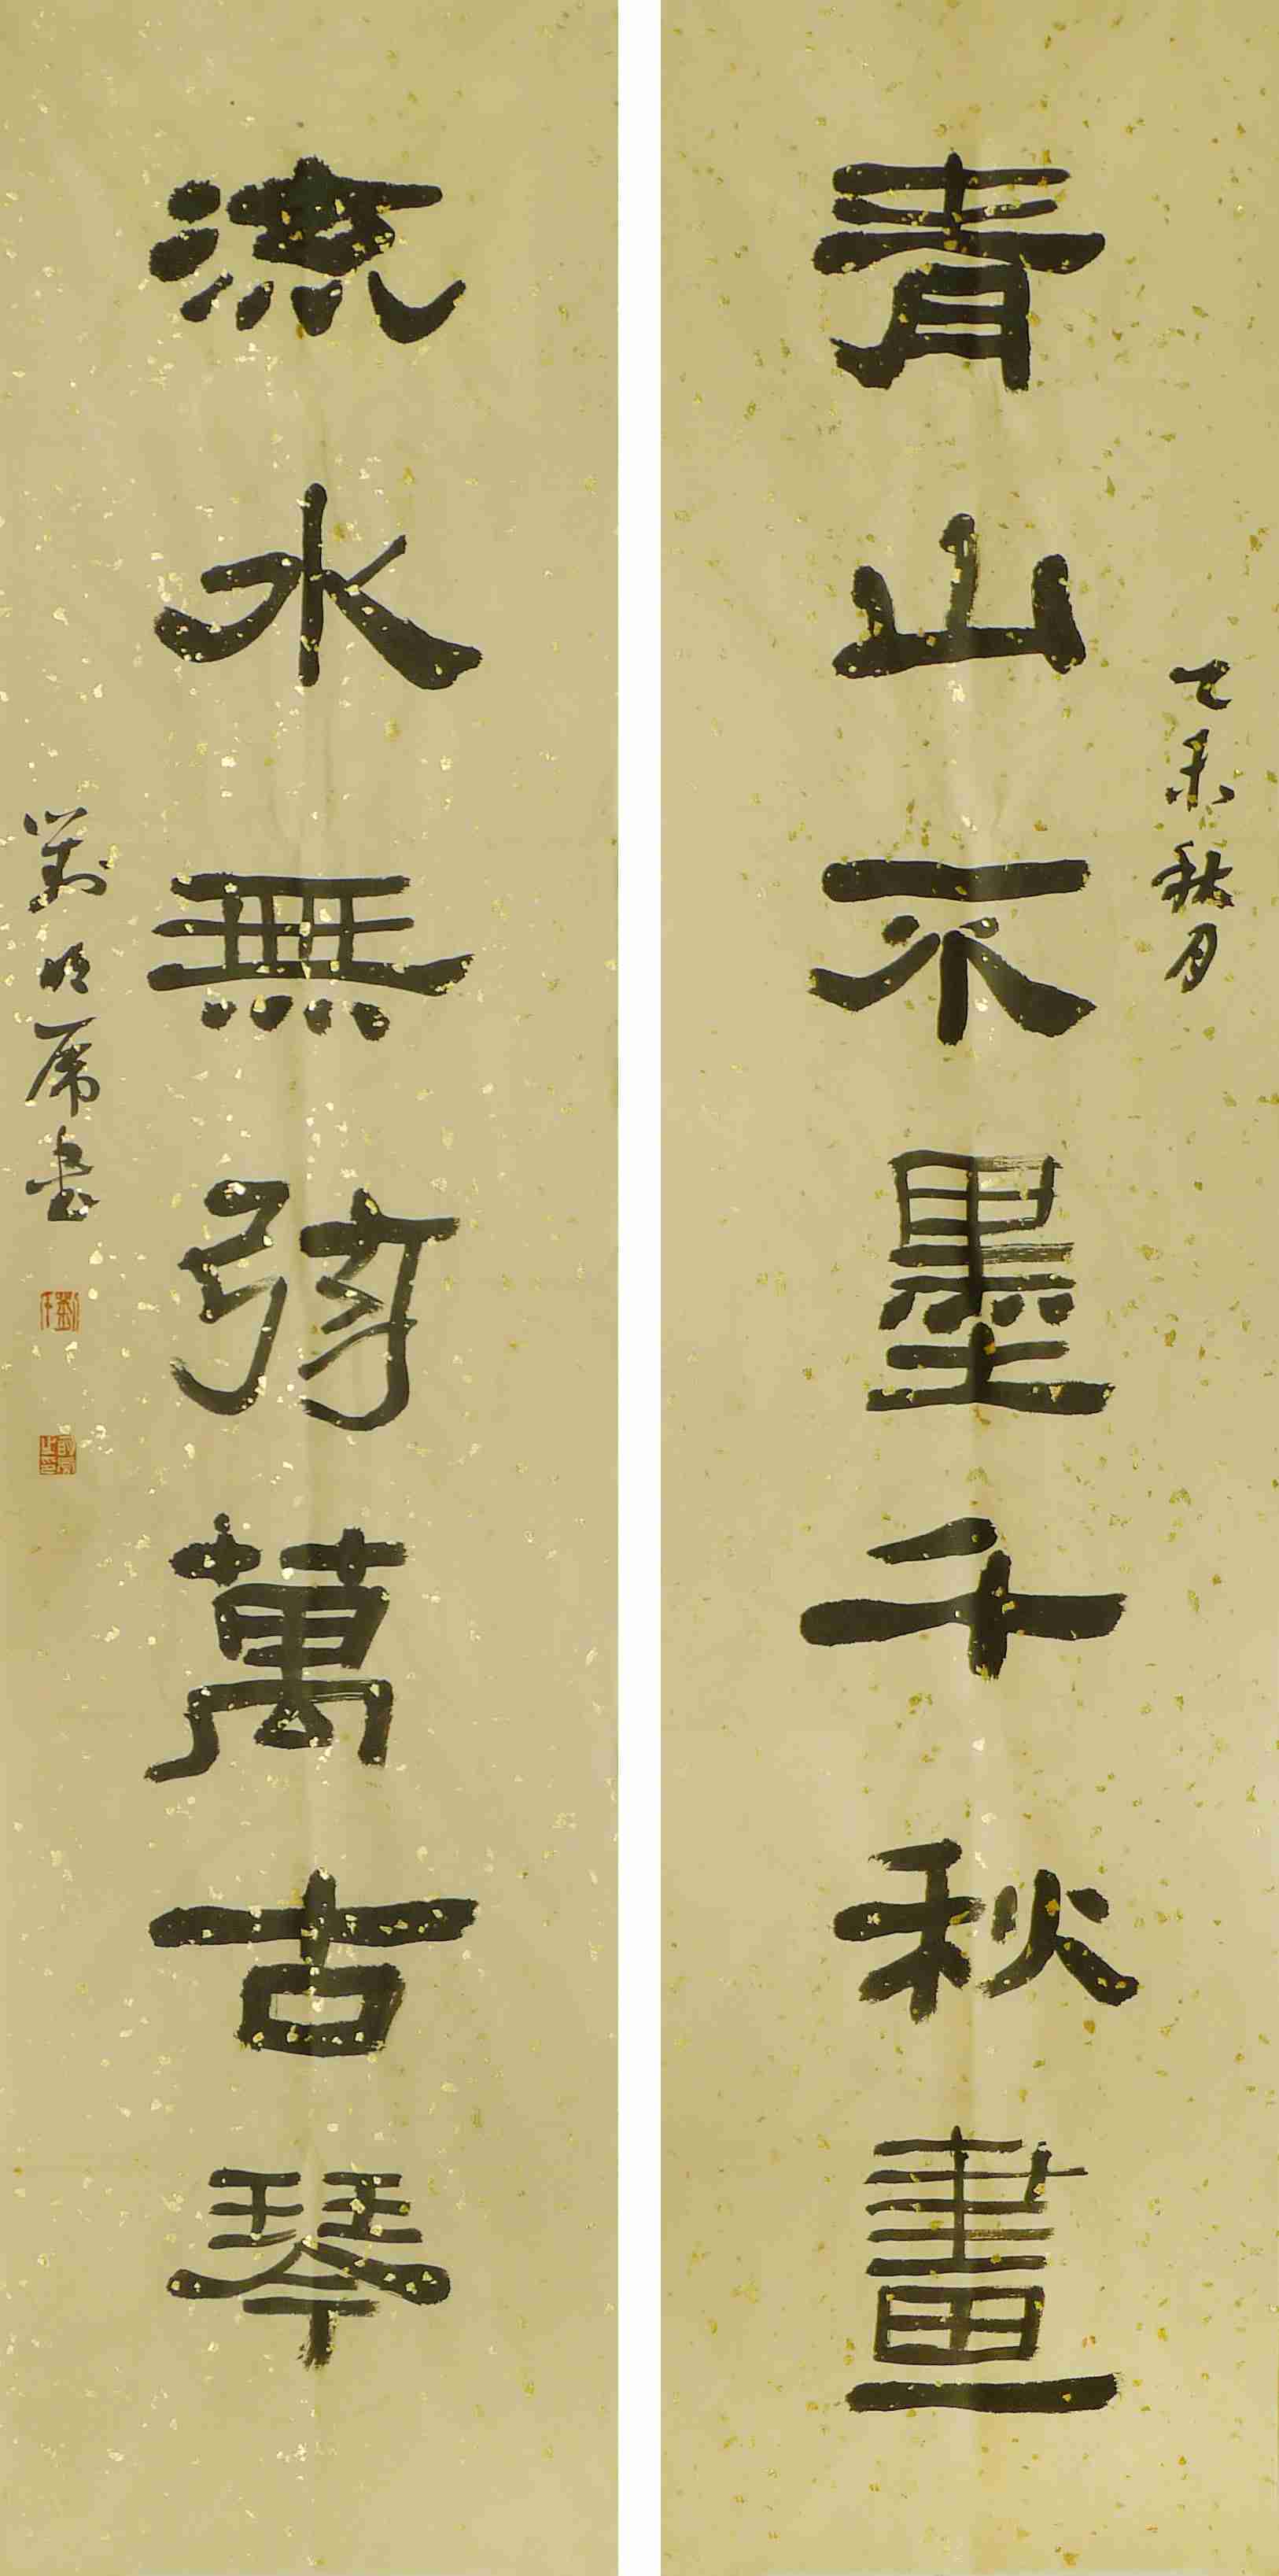 乙未秋月
青山不墨千秋畫
流水無弦萬古琴
劉明書